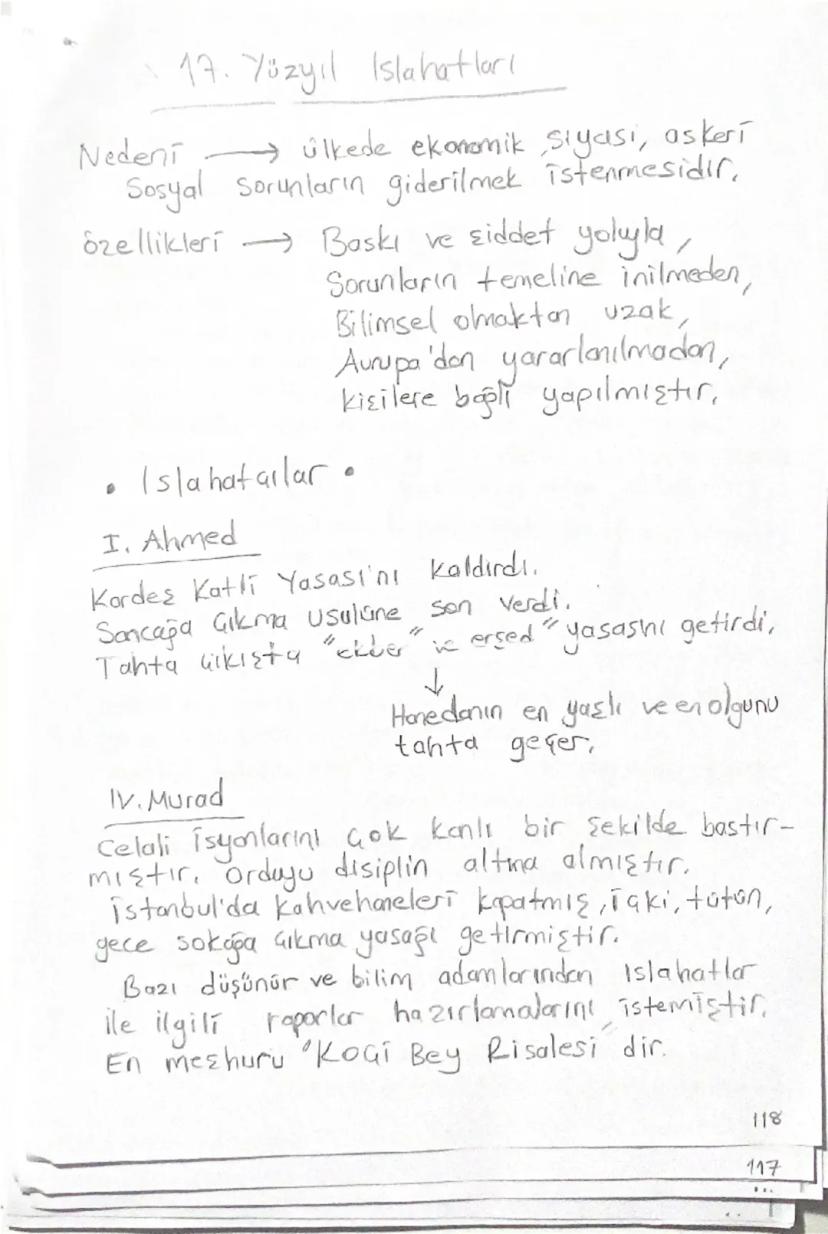 17. Yüzyıl Islahatları
Nedeni → ülkede ekonomik, siyasi, askeri
Sosyal sorunların giderilmek istenmesidir.
özellikleri → Baskı ve şiddet yoluyla,
Sorunların temeline inilmeden,
Bilimsel olmaktan uzak,
Avrupa'dan yararlanılmadan,
kişilere bağlı yapılmıştır.
• Islahatçılar •
I. Ahmed
Kardeş Katli Yasası'nı kaldırdı.
Sancağa Çıkma usulüne son verdi.
Tahta çıkışta "ekber" ve erşed" yasasını getirdi.
↓
Hanedanın en yaşlı ve en olgunu
tahta geçer.
IV. Murad
Celali isyonlarını çok kanlı bir şekilde bastır-
mıştır. Orduyu disiplin altına almıştır.
İstanbul'da kahvehaneleri kapatmış, içki, tütün,
gece sokağa çıkma yasağı getirmiştir.
Bazı düşünür ve bilim adamlarından ıslahatlar
ile ilgili raporlar hazırlamalarını istemiştir.
En meşhuru "KOÇİ Bey Risalesi" dir.
118
117
...
..